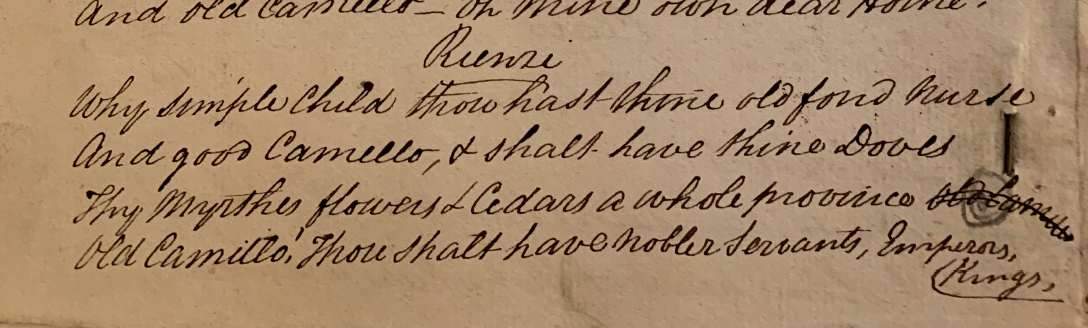 And old Camillo— Oh mine own dear Home!
Rienzi
Why simple Child thou hast thine old fond Nurse
And good Camillo, & shalt have thine Doves
Thy Myrthes flowers & Cedars a whole province old Camillo
Old Camillo! Thou shalt have nobler Servants, Emperors,
Kings,